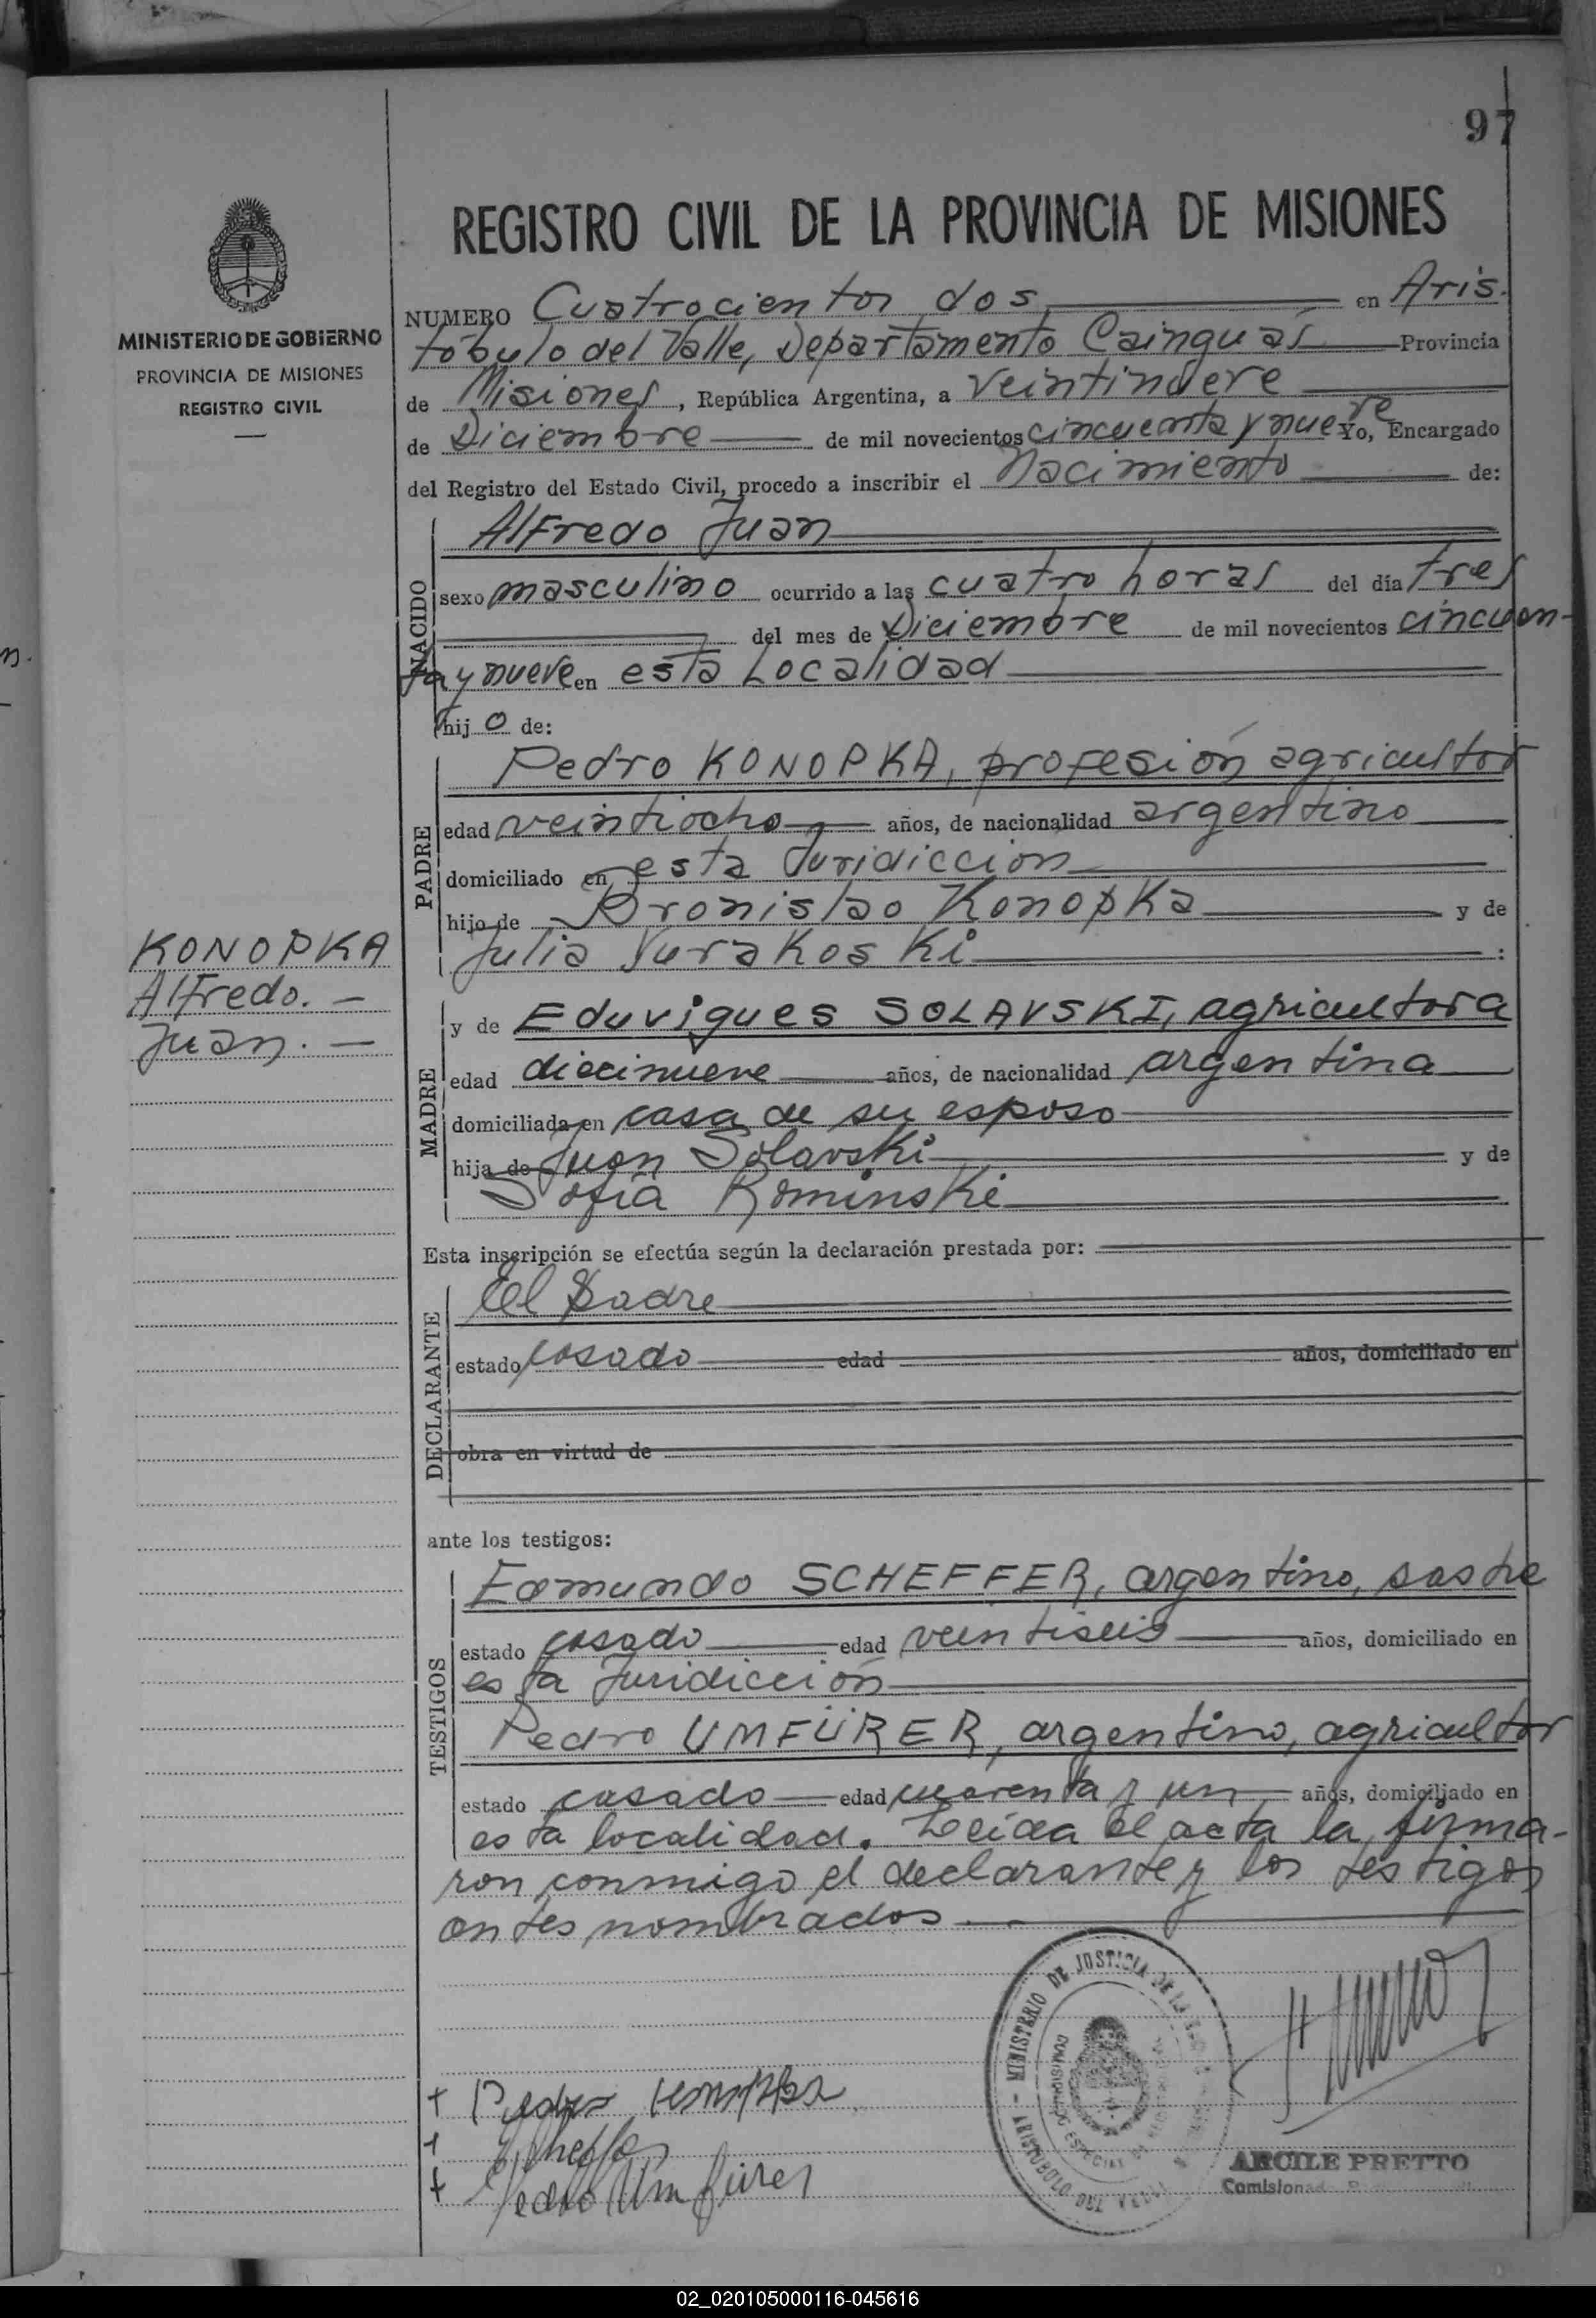 97
REGISTRO CIVIL DE LA PROVINCIA DE MISIONES
MINISTERIO DE GOBIERNO
PROVINCIA DE MISIONES
REGISTRO CIVIL
NUMERO Cuatrocientos dos en Aris.
tóbulo del Valle, Departamento Cainguás Provincia
de Misiones, República Argentina, a Veintinueve
de Diciembre de mil novecientos cincuenta y nueve Yo, Encargado
del Registro del Estado Civil, procedo a inscribir el Nacimiento de:
NACIDO
Alfredo Juan
sexo masculino ocurrido a las cuatro horas del día tres
del mes de Diciembre de mil novecientos cincuen-
ta y nueve en esta Localidad
hijo de:
PADRE
Pedro KONOPKA, profesión agricultor
edad veintiocho años, de nacionalidad argentino
domiciliado en esta Juridiccion
hijo de Bronislao Konopka y de
Julia Yurakoski :
KONOPKA
Alfredo. –
Juan. –
MADRE
y de Eduvigues SOLAVSKI, agricultora
edad diecinueve años, de nacionalidad argentina
domiciliada en casa de su esposo
hija de Juan Solavski y de
Sofía Rominski
Esta inscripción se efectúa según la declaración prestada por:
DECLARANTE
El Padre
estado casado edad años, domiciliado en
obra en virtud de
ante los testigos:
TESTIGOS
Edmundo SCHEFFER, argentino, sastre
estado casado edad veintiseis años, domiciliado en
esta Juridicción
Pedro UMFÜRER, argentino, agricultor
estado casado edad cuarenta y un años, domiciliado en
esta localidad. Leída el acta la firma-
ron conmigo el declarante y los testigos
antes nombrados
+ Pedro Konopka
+
+ Pedro Umfürer
MINISTERIO DE JUSTICIA DE LA
ARISTOBULO DEL VALLE
ESPECIAL
ARCILE PRETTO
02_020105000116-045616